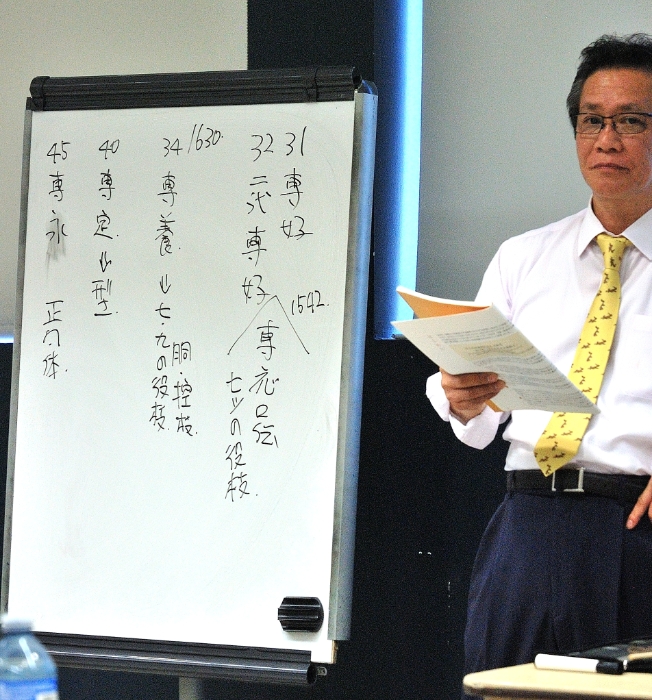 31 専好
32 二代専好
1542.
専応口伝
七ツの役枝.
34 1630.
専養 ↓ 七・九の役枝.
胴・控枝.
40 専定 ↓ 型.
45 専永 正風体.